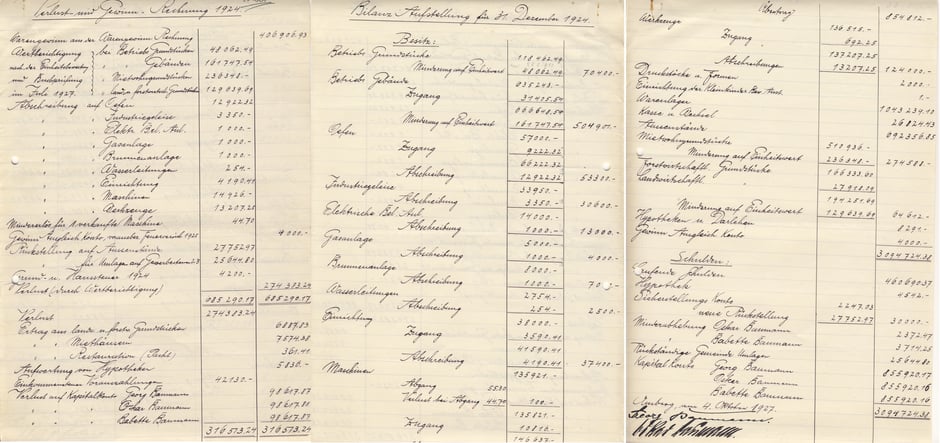 Verlust- und Gewinn-Rechnung 1924.
Warengewinn aus der Warengewinn Rechnung 406906.93
Wertberichtigung bei Betriebsgrundstücken 48062.49
nach der Einheitsbewertg. " Gebäuden 161747.54
und Buchprüfung " Mietwohngrundstücken 236348.-
im Jule 1927. " land u. forstwirtsch. Grundstücken 129039.69
Abschreibung auf Oefen 12922.32
" " Industriegleise 3350.-
" " Elektr. Bel. Anl. 1000.-
" " Gasanlage 1000.-
" " Brunnenanlage 1000.-
" " Wasserleitungen 254.-
" " Einrichtung 4190.41
" " Maschinen 14926.-
" " Werkzeuge 13207.25
Mindererlös für 1 verkaufte Maschine 44.70
Gewinn Ausgleich Konto, 1925 4000.-
Rückstellung auf Aussenstände 27752.97
" für Umlage auf Gewerbesteuer 25644.80
Grund- u. Haussteuer 1924 4200.-
Verlust (durch Wertberichtigung) 274383.24
685290.17 685290.17
Verlust 274383.24
Ertrag aus landw. u. forstw. Grundstücken 6887.83
" " Miethäusern 7574.38
" " Restauration (Pacht) 361.41
Aufwertung von Hypotheken 5830.-
Vorauszahlungen 42130.-
Verlust auf Kapitalkonto Georg Baumann 98617.87
" " " Oskar Baumann 98617.87
" " " Babette Baumann 98617.87
316573.24 316573.24
Bilanz Aufstellung für 31. Dezember 1924.
Besitz:
Betriebs Grundstücke 118462.49
Minderung auf Einheitswert 48062.49 70400.-
Betriebs Gebäude 635243.-
Zugang 31405.54
666648.54
Minderung auf Einheitswert 161747.54 504901.-
Oefen 57000.-
Zugang 9222.32
66222.32
Abschreibung 12922.32 53300.-
Industriegleise 33950.-
Abschreibung 3350.- 30600.-
Elektrische Bel. Anl. 14000.-
Abschreibung 1000.- 13000.-
Gasanlage 5000.-
Abschreibung 1000.- 4000.-
Brunnenanlage 8000.-
Abschreibung 1000.-
Wasserleitungen 2754.-
Abschreibung 254.- 2500.-
Einrichtung 38000.-
Zugang 3590.41
41590.41
Abschreibung 4190.41 37400.-
Maschinen 135921.-
Abgang 55.30
Verlust bei Abgang 44.70 100.-
135821.-
Zugang 10816.-
146637.-
Übertrag 854812.-
Werkzeuge 136515.-
Zugang 692.25
137207.25
Abschreibung 13207.25 124000.-
Druckstöcke u. Formen 2000.-
Einrichtung der Kleinkinder Bew. Anst. 1.-
Warenlager 1043239.10
Kassa u. Wechsel 26824.43
Aussenstände 692356.85
Mietwohngrundstücke 510936.-
Minderung auf Einheitswert 236348.- 274588.-
Forstwirtschaftl. Grundstücke 166333.60
Landwirtschaftl. " 27918.09
194251.69
Minderung auf Einheitswert 129639.69 64612.-
Hypotheken u. Darlehen 8291.-
Gewinn Ausgleich Konto 4000.-
3094724.38
Schulden:
Laufende Schulden 460690.37
Hypothek 4542.-
Sicherstellungs Konto 2247.03
neue Rückstellung 27752.97 30000.-
Minderabhebung Oskar Baumann 2372.47
Babette Baumann 3714.25
Rückständige Gemeinde Umlagen 25644.80
Kapital Konto Georg Baumann 855920.17
Oskar Baumann 855920.16
Babette Baumann 855920.16
Amberg am 4. Oktober 1927. 3094724.38
Georg Baumann.
Oskar Baumann